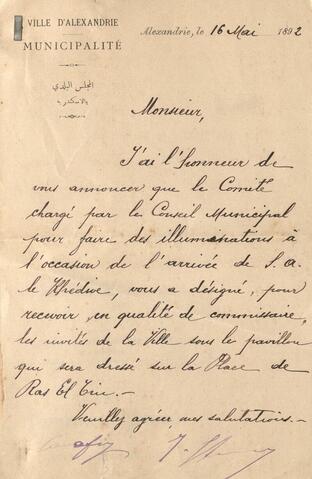 VILLE D'ALEXANDRIE
MUNICIPALITÉ
المجلس البلدي
بالاسكندرية
Alexandrie, le 16 Mai 1892
Monsieur,
J'ai l'honneur de
vous annoncer que le Comité
chargé par le Conseil Municipal
pour faire des illuminations à
l'occasion de l'arrivée de S. A.
le Khédive, vous a désigné, pour
recevoir, en qualité de commissaire,
les invités de la Ville sous le pavillon
qui sera dressé sur la Place de
Ras El Tin.-
Veuillez agréer, mes salutations.-